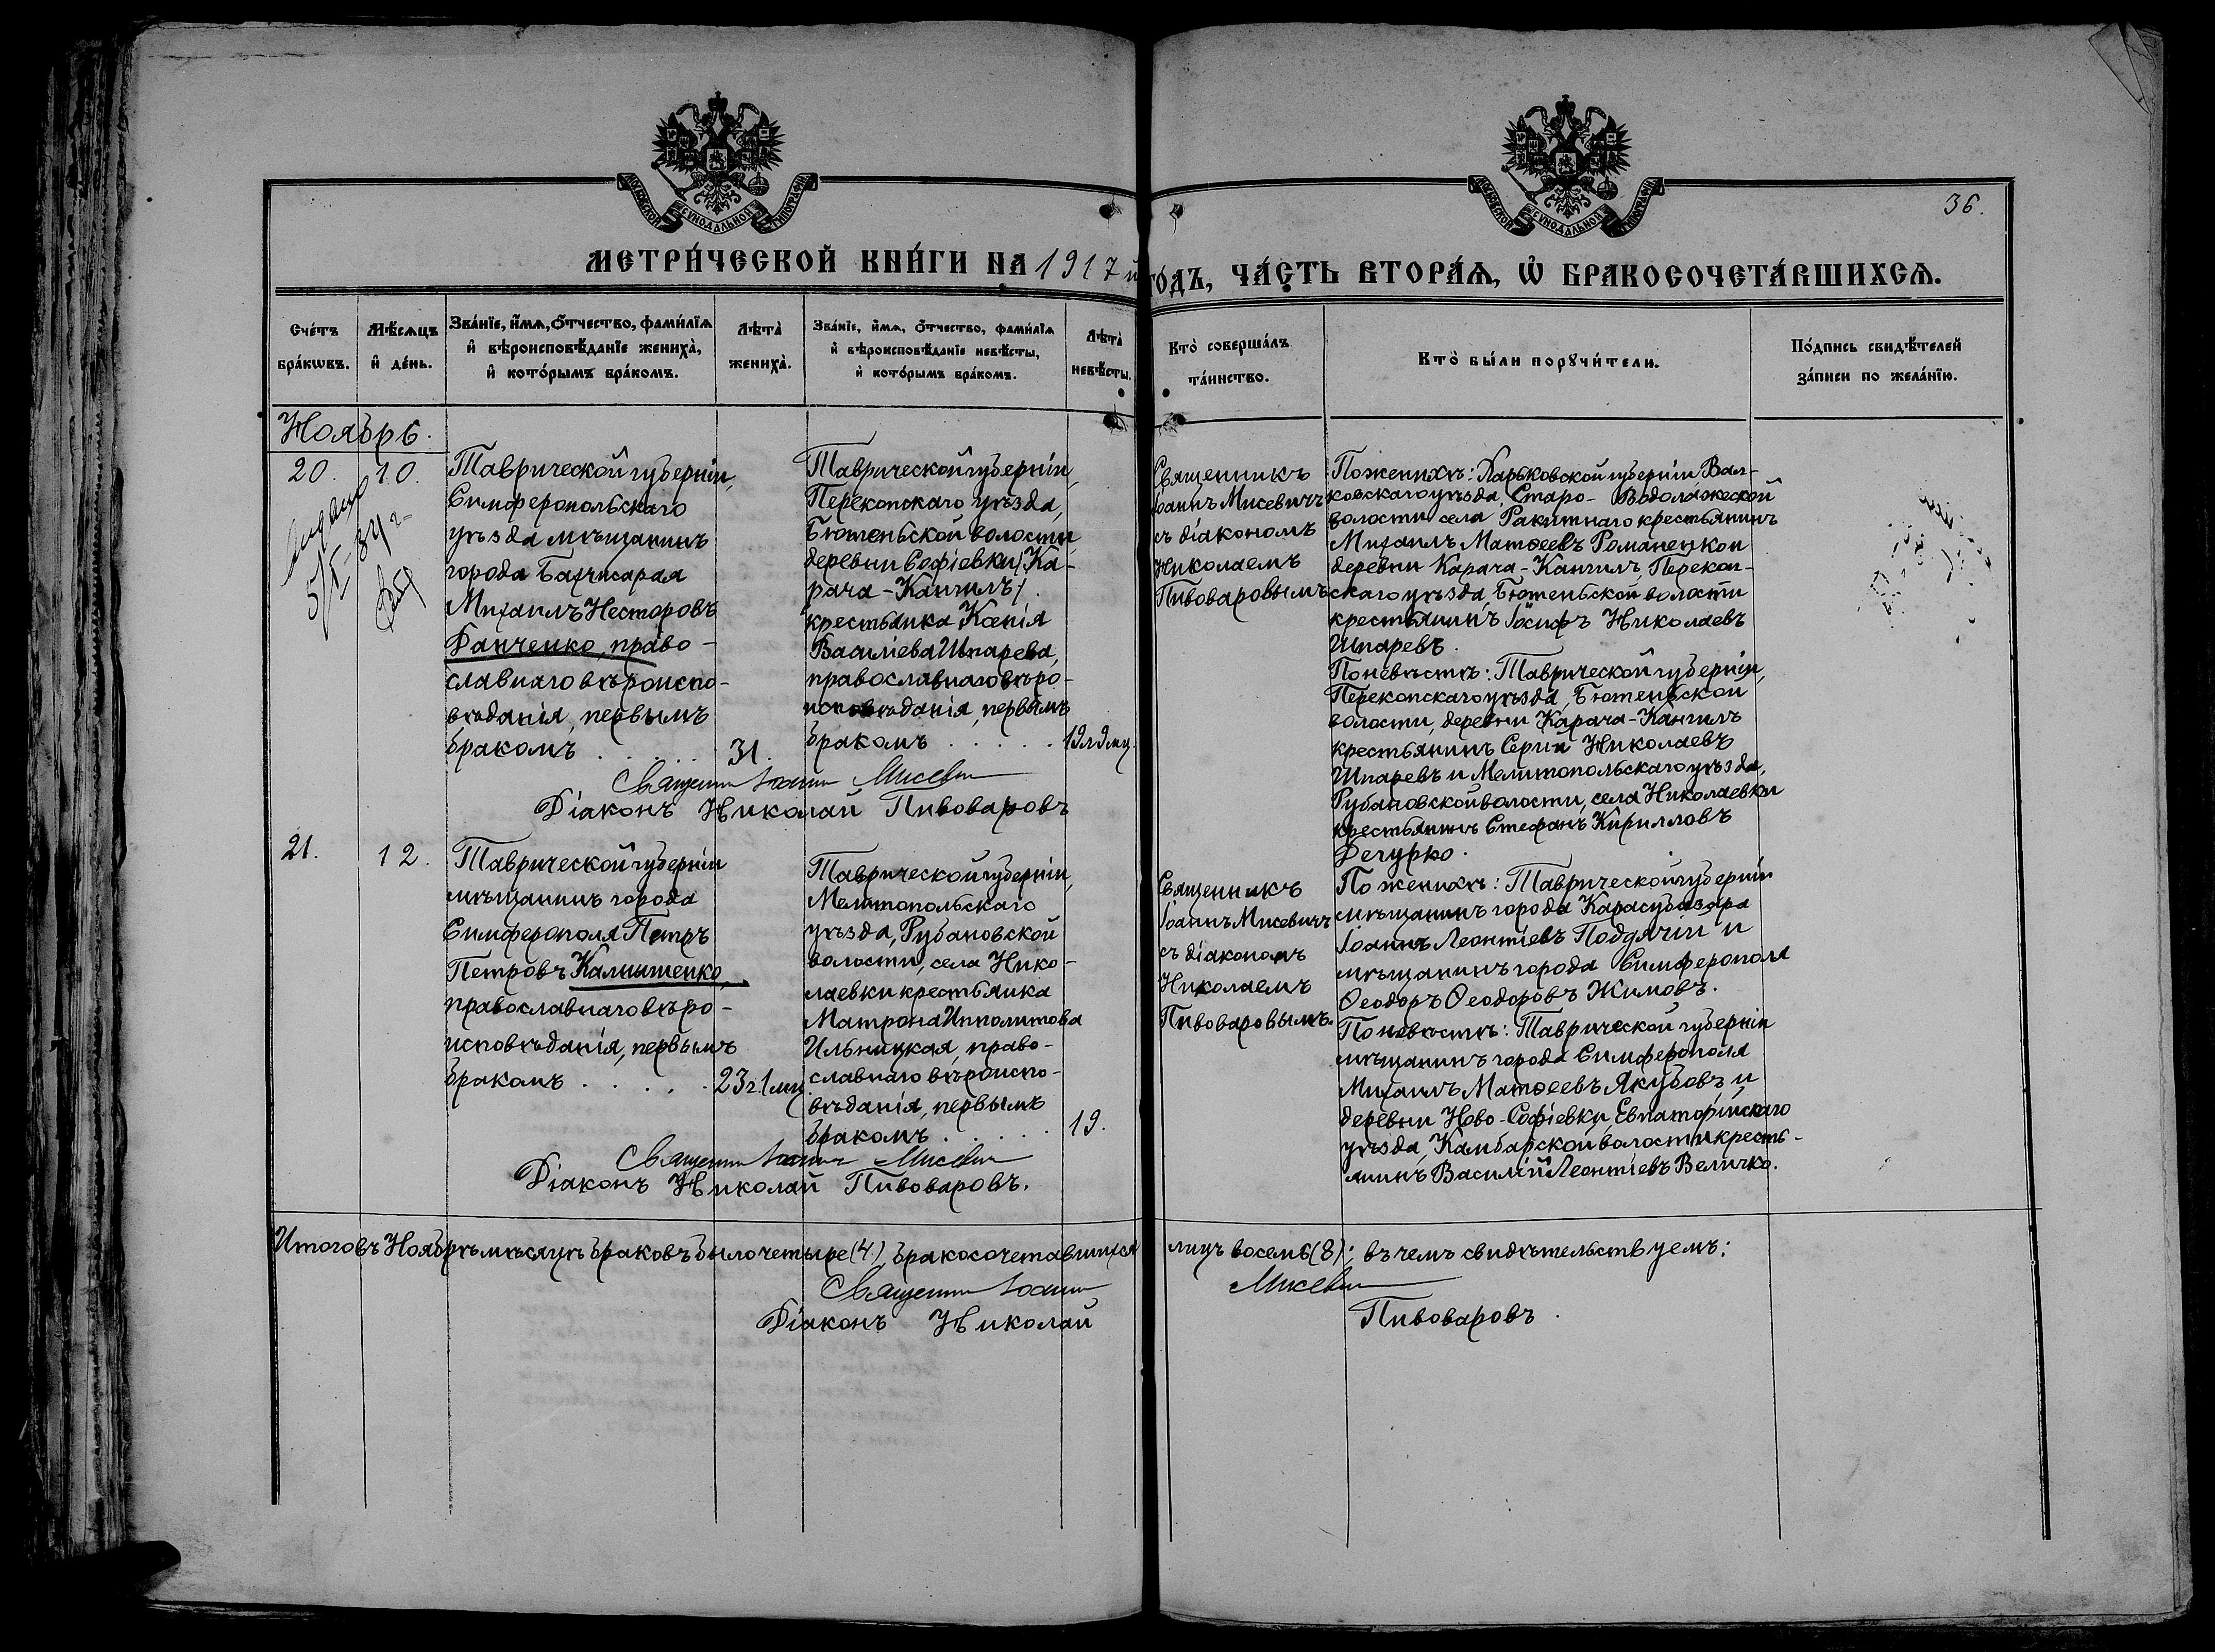 36.
МОСКОВСКОЙ СУНОДАЛЬНОЙ ТИПОГРАФІИ
МОСКОВСКОЙ СУНОДАЛЬНОЙ ТИПОГРАФІИ
МЕТРИ́ЧЕСКОЙ КНИ́ГИ НА 1917 й ГО́ДЪ, ЧА́СТЬ ВТОРА́Ѧ, Ѡ БРАКОСОЧЕТА́ВШИХСѦ.
Сче́тъ
бра́кѡвъ.
Мѣ́сѧцъ
и҆ де́нь.
Зва́нїе, и҆́мѧ, ѻ҆́тчество, фами́лїѧ
и҆ вѣроисповѣ́данїе жениха̀,
и҆ кото́рымъ бра́комъ.
Лѣта̀
жениха̀.
Зва́нїе, и҆́мѧ, ѻ҆́тчество, фами́лїѧ
и҆ вѣроисповѣ́данїе невѣ́сты,
и҆ кото́рымъ бра́комъ.
Лѣта̀
невѣ́сты.
Кто̀ соверша́лъ
та́инство.
Кто̀ бы́ли порꙋчи́тели.
По́дпись свидѣ́телей
за́писи по жела́нїю.
Ноябрь.
20.
10.
Таврической губерніи,
Симферопольскаго
уѣзда мѣщанинъ
города Бахчисарая
Михаилъ Несторовъ
Данченко, право-
славнаго вѣроиспо-
вѣданія, первымъ
бракомъ . . . . .
31.
Таврической губерніи,
Перекопскаго уѣзда,
Бютеньской волости
деревни Софіевки /Ка-
рача-Кангилъ/.
крестьянка Ксенія
Васильева Шпарева,
православнаго вѣро-
исповѣданія, первымъ
бракомъ . . . . .
19 л 9 мц.
Священникъ
Іоаннъ Мисевичъ
съ діакономъ
Николаемъ
Пивоваровымъ
По женихѣ: Харьковской губерніи Вал-
ковскаго уѣзда, Старо-Водолажской
волости села Ракитнаго крестьянинъ
Михаилъ Матѳеевъ Романенко и
деревни Карача-Кангилъ, Перекоп-
скаго уѣзда, Бютеньской волости
крестьянинъ Іосифъ Николаевъ
Шпаревъ.
По невѣстѣ: Таврической губерніи,
Перекопскаго уѣзда, Бютеньской
волости, деревни Карача-Кангилъ
крестьянинъ Сергій Николаевъ
Шпаревъ и Мелитопольскаго уѣзда,
Рубановской волости, села Николаевки
крестьянинъ Стефанъ Кирилловъ
Дегурко.
Священникъ Іоаннъ Мисевич
Діаконъ Николай Пивоваровъ
21.
12.
Таврической губерніи
мѣщанинъ города
Симферополя Петръ
Петровъ Калышенко,
православнаго вѣро-
исповѣданія, первымъ
бракомъ . . . . .
23 г. 1 мц.
Таврической губерніи,
Мелитопольскаго
уѣзда, Рубановской
волости, села Нико-
лаевки крестьянка
Матрона Ипполитова
Ильницкая, право-
славнаго вѣроиспо-
вѣданія, первымъ
бракомъ . . . . .
19.
Священникъ
Іоаннъ Мисевичъ
съ діакономъ
Николаемъ
Пивоваровымъ.
По женихѣ: Таврической губерніи
мѣщанинъ города Карасубазара
Іоаннъ Леонтіевъ Поддячій и
мѣщанинъ города Симферополя
Ѳеодоръ Ѳеодоровъ Жимовъ.
По невѣстѣ: Таврической губерніи
мѣщанинъ города Симферополя
Михаилъ Матѳеевъ Якубовъ и
деревни Ново-Софіевки, Евпаторійскаго
уѣзда, Камбарской волости кресть-
янинъ Василій Леонтіевъ Величко.
Священникъ Іоаннъ Мисевич
Діаконъ Николай Пивоваровъ.
Итого въ Ноябрѣ мѣсяцѣ браковъ было четыре (4), бракосочетавшихся лицъ восемь (8); въ чемъ свидѣтельствуемъ:
Священникъ Іоаннъ Мисевич
Діаконъ Николай Пивоваровъ.